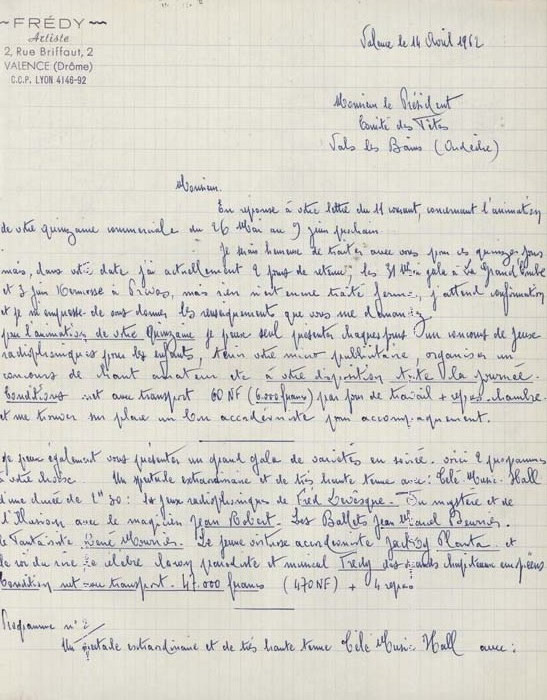 ~ FRÉDY ~
Artiste
2, Rue Briffaut, 2
VALENCE (Drôme)
C.C.P. LYON 4146-92
Valence le 14 Avril 1962
Monsieur le Président
Comité des Fêtes
Vals les Bains (Ardèche)
Monsieur.
En réponse à votre lettre du 11 courant, concernant l'animation
de votre quinzaine commerciale du 26 Mai au 9 juin prochain
Je serais heureux de traiter avec vous pour ces quinze jours
mais, dans votre date j'ai actuellement 2 jours de retenu, les 31 Mai gala à La Grand Combe
et 3 juin Kermesse à Privas, mais rien n'est encore traité ferme, j'attend confirmation
et je m'empresse de vous donner les renseignement que vous me demandez
pour l'animation de votre Quinzaine je peux seul présenter chaques jours un concours de jeux
radiophoniques pour les enfants, tenir votre micro publicitaire, organiser un
concours de chant amateur etc à votre disposition toute la journée.
Conditions net avec transport 60 NF (6.000 francs) par jour de travail + repas chambre.
et me trouver sur place un bon accordéoniste pour accompagnement.
Je peux également vous présenter un grand gala de variétés en soirée. voici 2 programmes
à votre choix. Un spectacle extraordinaire et de très haute tenue avec: Télé Music-Hall
d'une durée de 2h30: Les jeux radiophoniques de Fred Levèsque. Du mystère et de
l'Illusion avec le magicien Jean Robert. Les Ballets Jean
le fantaisiste René. Le jeune virtuose accordéoniste Jacky et
le roi du rire le célèbre clown parodiste et musical Frédy des grands chapiteaux européens
Condition net avec transport. 47.000 francs (470NF) + 4 repas
Programme n° 2/
Un spectacle extraordinaire et de très haute tenue Télé Music Hall avec: